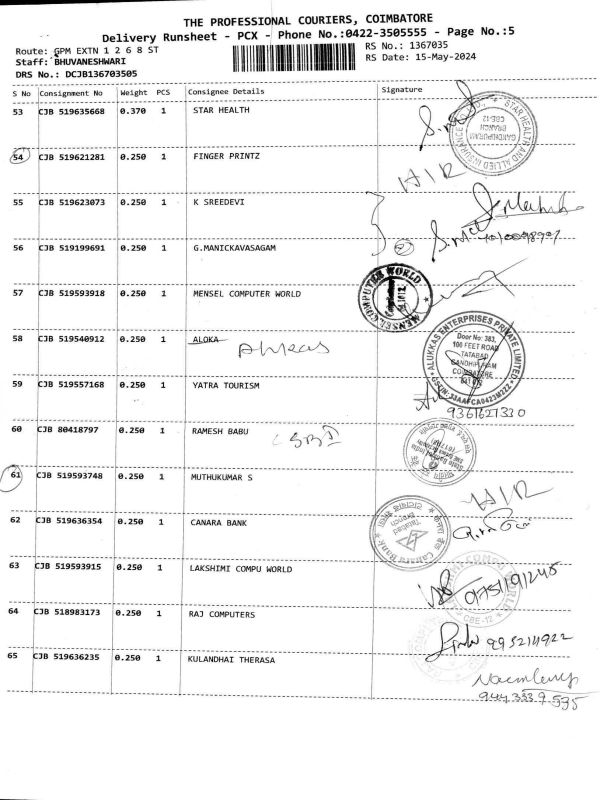 THE PROFESSIONAL COURIERS, COIMBATORE
Delivery Runsheet - PCX - Phone No.:0422-3505555 - Page No.:5
Route: GPM EXTN 1 2 6 8 ST
RS No.: 1367035
Staff: BHUVANESHWARI
RS Date: 15-May-2024
DRS No.: DCJB136703505
S No Consignment No Weight PCS Consignee Details Signature
53 CJB 519635668 0.370 1 STAR HEALTH
STAR HEALTH AND ALLIED INSURANCE
GANDHIPURAM
BRANCH
CBE-12
54 CJB 519621281 0.250 1 FINGER PRINTZ
55 CJB 519623073 0.250 1 K SREEDEVI
56 CJB 519199691 0.250 1 G.MANICKAVASAGAM
57 CJB 519593918 0.250 1 MENSEL COMPUTER WORLD
MENSEL COMPUTER WORLD
58 CJB 519540912 0.250 1 ALOKA
ALUKKAS ENTERPRISES PRIVATE LIMITED
Door No: 383,
100 FEET ROAD
TATABAD
GANDHIPURAM
COIMBATORE
59 CJB 519557168 0.250 1 YATRA TOURISM
9361621330
60 CJB 80418797 0.250 1 RAMESH BABU
SBI
61 CJB 519593748 0.250 1 MUTHUKUMAR S
62 CJB 519636354 0.250 1 CANARA BANK
Canara Bank
Tatabad
Branch
63 CJB 519593915 0.250 1 LAKSHIMI COMPU WORLD
COMPU WORLD
CBE-12
64 CJB 518983173 0.250 1 RAJ COMPUTERS
65 CJB 519636235 0.250 1 KULANDHAI THERASA